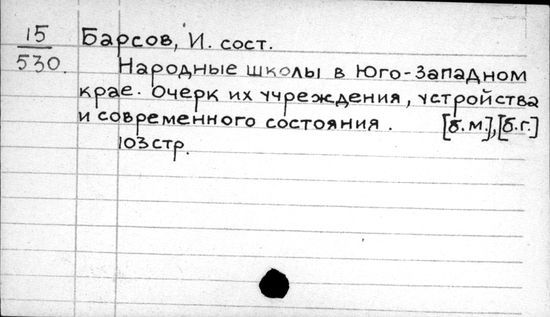 15 Барсов, И. сост.
530. Народные школы в Юго-Западном
крае. Очерк их учреждения, устройства
и современного состояния. [б.м.],[б.г.]
103 стр.